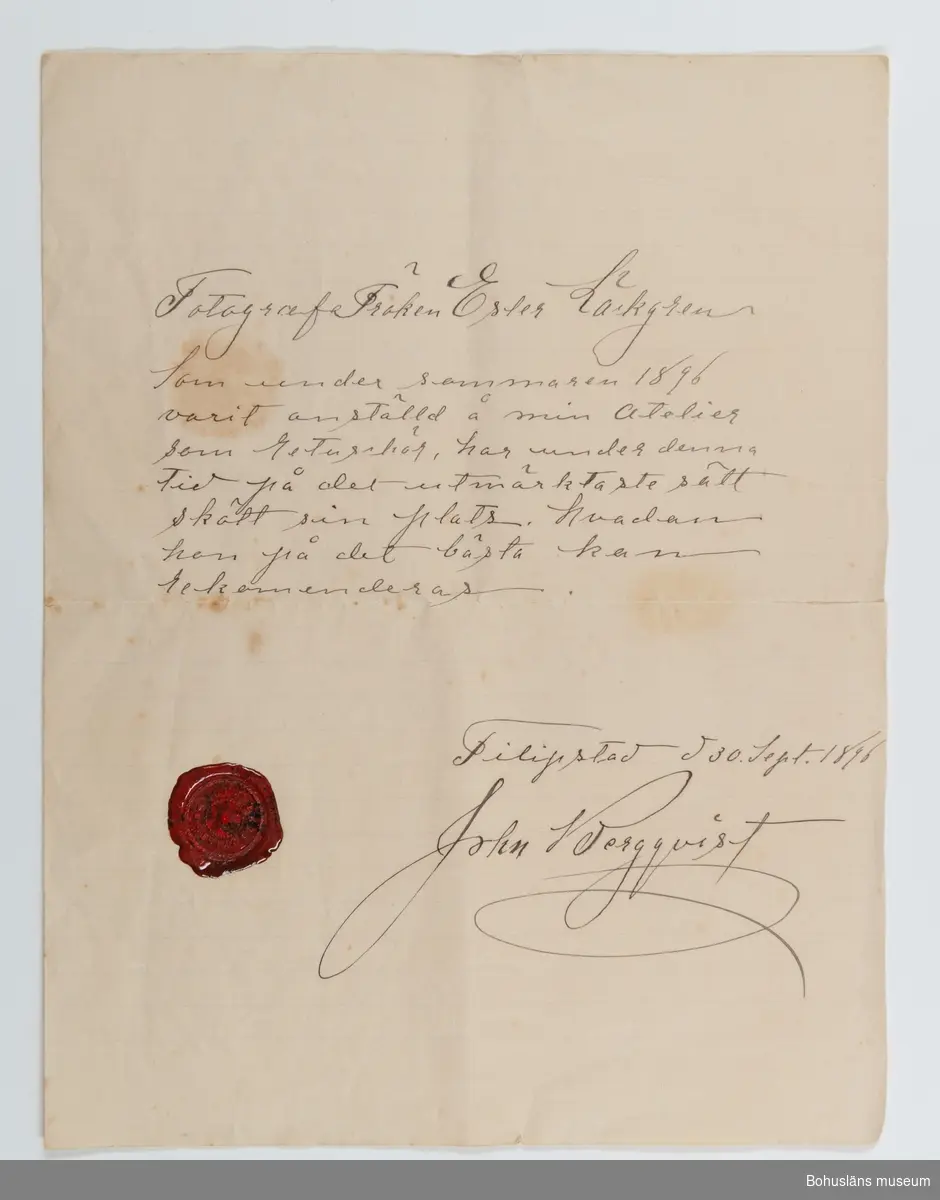 Fotografa Fröken Ester Kackgren
Som under sommaren 1896
varit anställd å min Atelier
som Retuschör, har under denna
tid på det utmärktaste sätt
skött sin plats. hvadan
hon på det bästa kan
Rekomenderas.
Filipstad d 30. Sept. 1896
John Bergqvist
Bohusläns museum